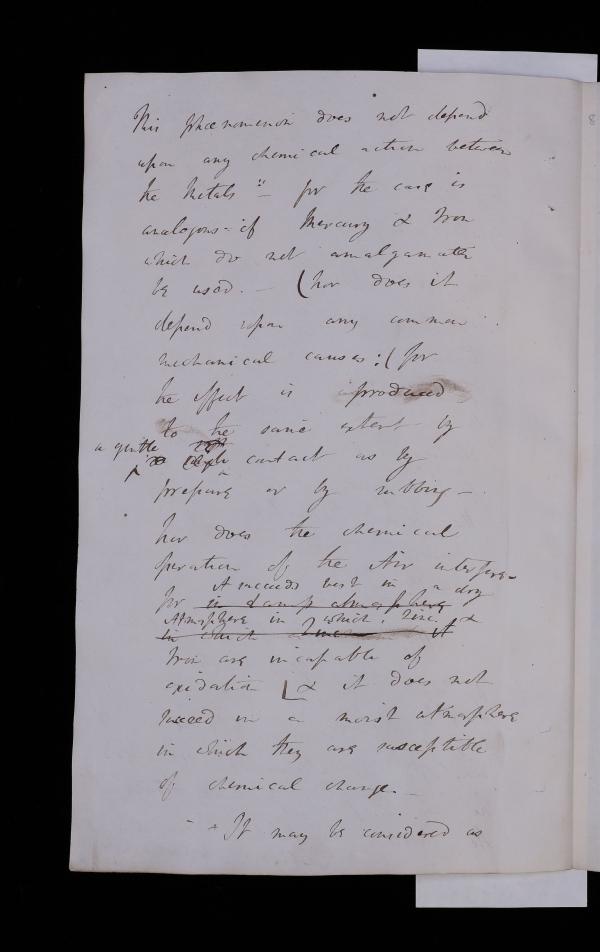 This phænomenon does not depend
upon any chemical action between
the Metals - for the case is
analogous - if Mercury & Iron
which do not amalgamate
be used. - (nor does it
depend upon any common
mechanical causes : (for
the effect is produced
to the same extent by
a gentle contact as by
pressure or by rubbing -
nor does the chemical
operation of the Air interfere -
for it succeeds best in a dry
in damp atmosphere
Atmosphere in which Zinc &
in which
Iron are incapable of
oxidation & it does not
succeed in a moist atmosphere
in which they are susceptible
of chemical change. -
- It may be considered as